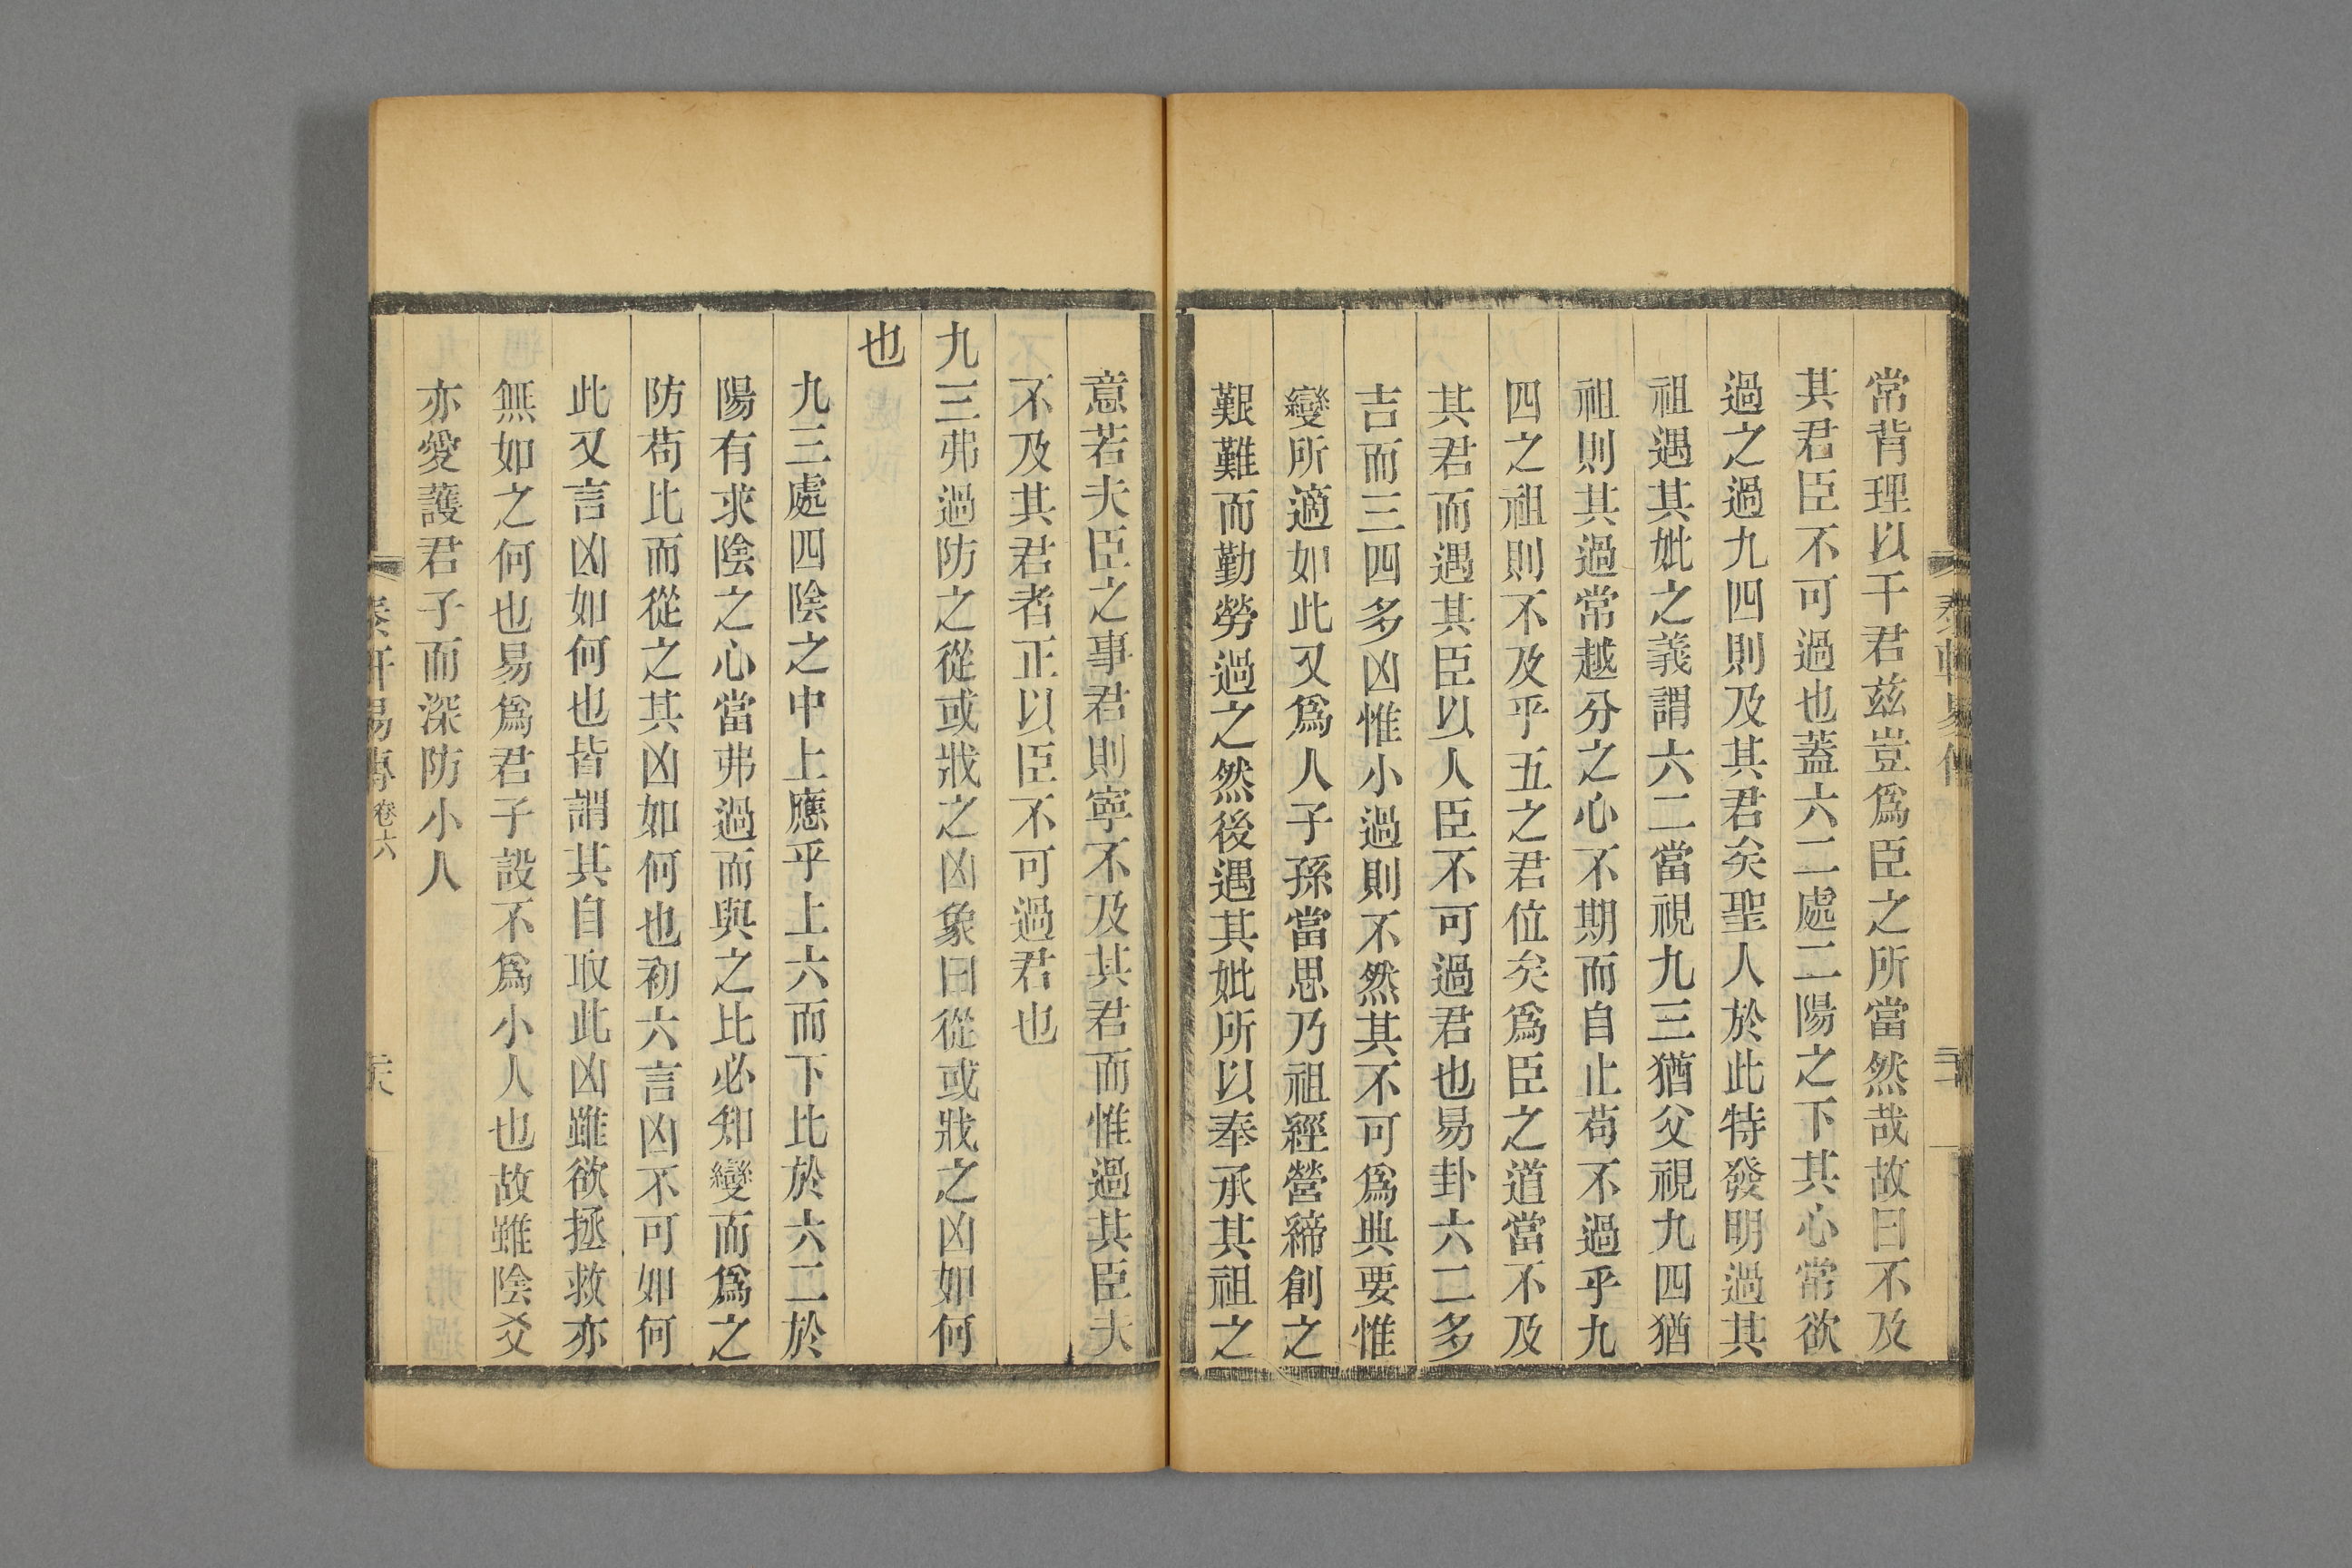 常背理以干君兹豈爲臣之所當然哉故曰不及
其君臣不可過也蓋六二處二陽之下其心常欲
過之過九四則及其君矣聖人於此特發明過其
祖遇其妣之義謂六二當視九三猶父視九四猶
祖則其過常越分之心不期而自止苟不過乎九
四之祖則不及乎五之君位矣爲臣之道當不及
其君而遇其臣以人臣不可過君也易卦六二多
吉而三四多凶惟小過則不然其不可爲典要惟
變所適如此又爲人子孫當思乃祖經營締創之
艱難而勤勞過之然後遇其妣所以奉承其祖之
意若夫臣之事君則寧不及其君而惟過其臣夫
不及其君者正以臣不可過君也
九三弗過防之從或戕之凶象曰從或戕之凶如何
也
九三處四陰之中上應乎上六而下比於六二於
陽有求陰之心當弗過而與之比必知變而爲之
防苟比而從之其凶如何也初六言凶不可如何
此又言凶如何也皆謂其自取此凶雖欲拯救亦
無如之何也易爲君子設不爲小人也故雖陰爻
亦愛護君子而深防小人
易傳 卷六